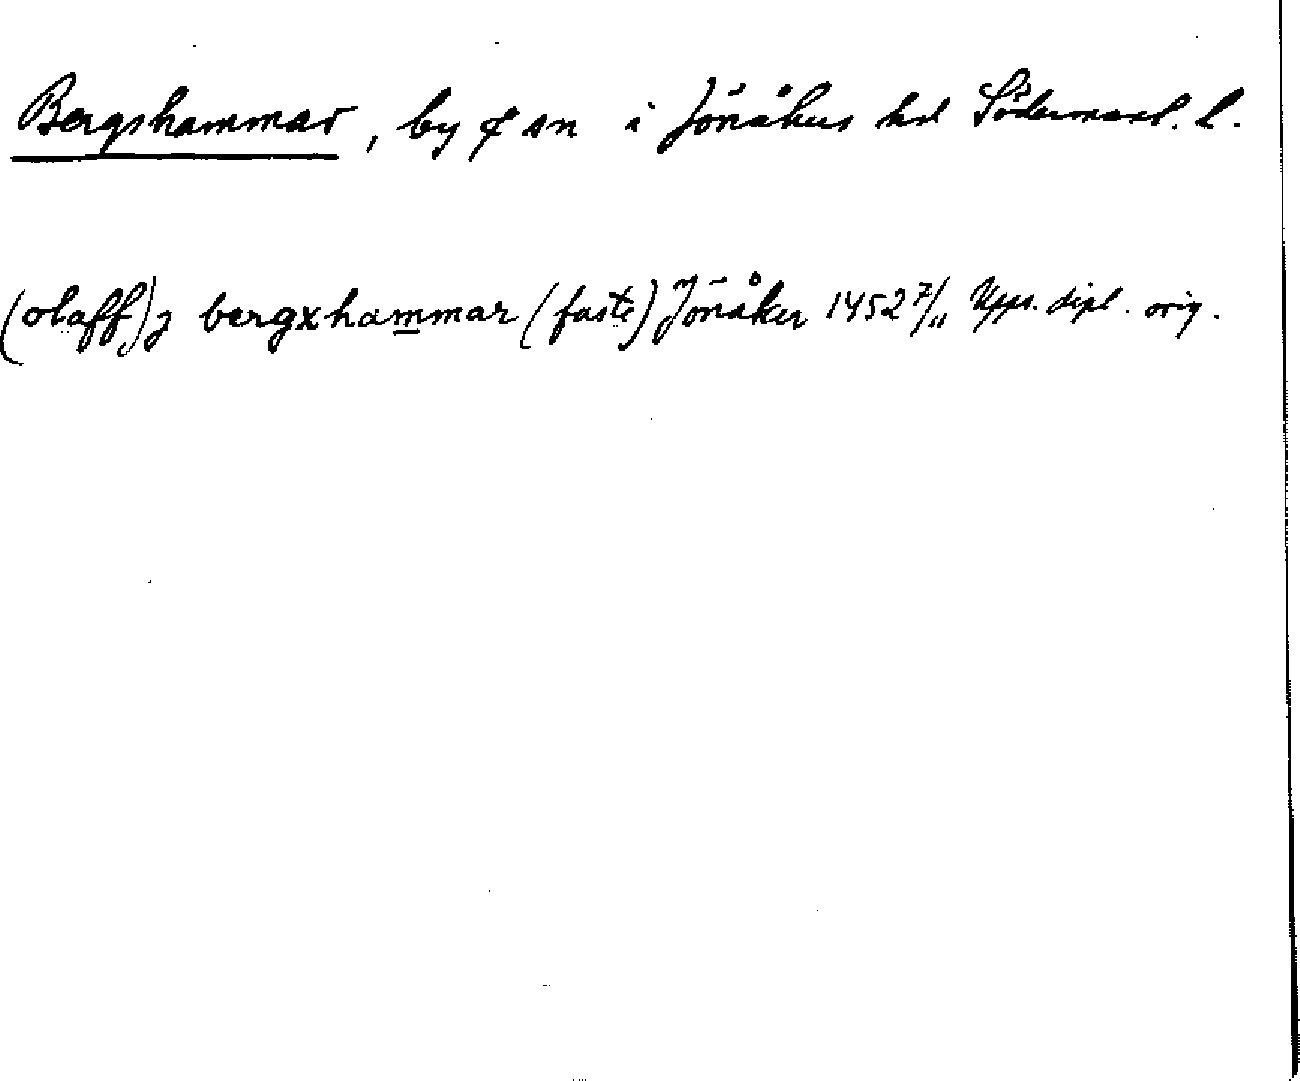 Bergshammar, by o sn i Jönåkers hd Södermanl. l.
(olaff) j bergxhammar (faste) Jönåker 1452 7/11 Upps. dipl. orig.